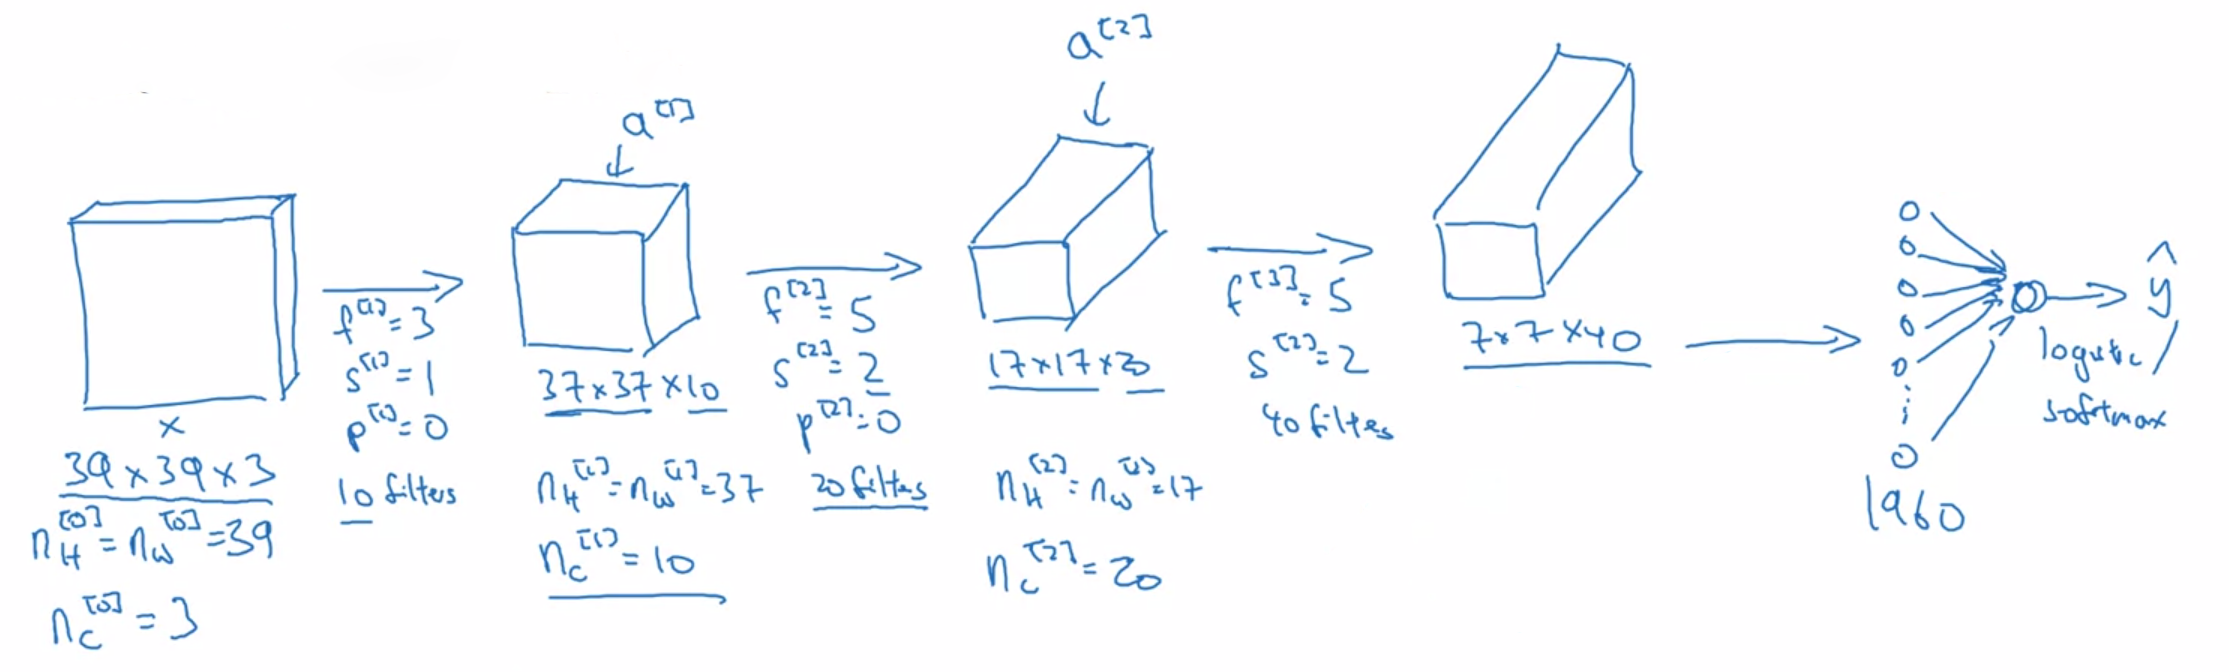 a^[1]
a^[2]
x
39×39×3
n_H^[0] = n_W^[0] = 39
n_C^[0] = 3
f^[1] = 3
s^[1] = 1
p^[1] = 0
10 filters
37×37×10
n_H^[1] = n_W^[1] = 37
n_C^[1] = 10
f^[2] = 5
s^[2] = 2
p^[2] = 0
20 filters
17×17×20
n_H^[2] = n_W^[2] = 17
n_C^[2] = 20
f^[3] = 5
s^[2] = 2
40 filters
7×7×40
1960
ŷ
logistic /
softmax